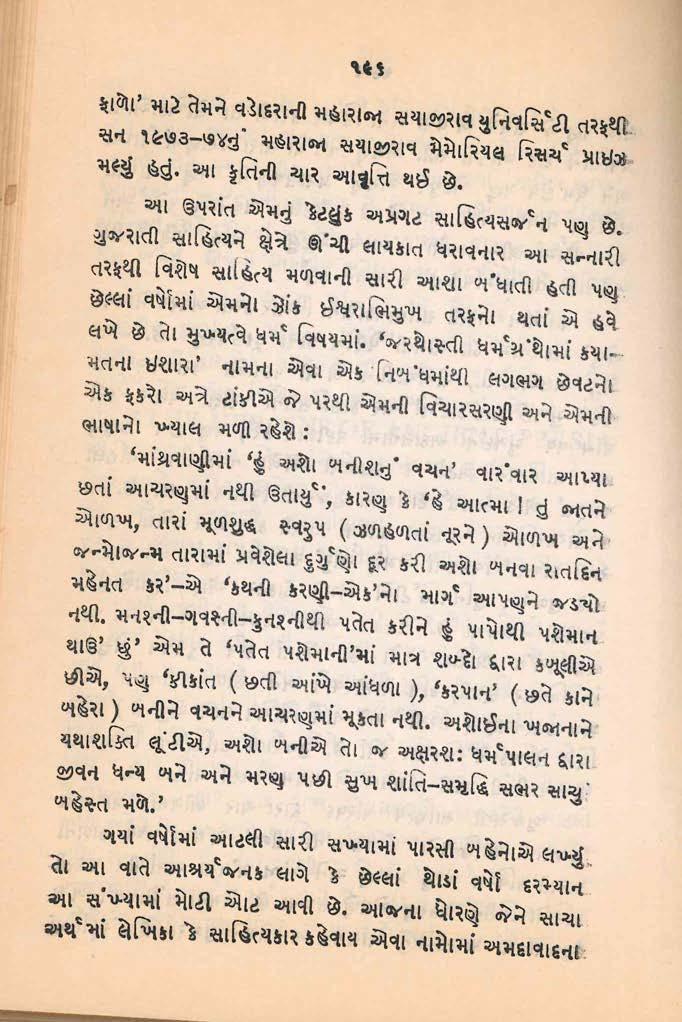 ૧૯૬
ફાળો' માટે તેમને વડોદરાની મહારાજા સયાજીરાવ યુનિવર્સિટી તરફથી
સન ૧૯૭૩–૭૪નું મહારાજા સયાજીરાવ મેમોરિયલ રિસર્ચ પ્રાઇઝ
મળ્યું હતું. આ કૃતિની ચાર આવૃત્તિ થઈ છે.
આ ઉપરાંત એમનું કેટલુંક અપ્રગટ સાહિત્યસર્જન પણ છે.
ગુજરાતી સાહિત્યને ક્ષેત્રે ઊંચી લાયકાત ધરાવનાર આ સન્નારી
તરફથી વિશેષ સાહિત્ય મળવાની સારી આશા બંધાતી હતી પણ
છેલ્લાં વર્ષોમાં એમનો ઝોંક ઈશ્વરાભિમુખ તરફનો થતાં એ હવે
લખે છે તો મુખ્યત્વે ધર્મ વિષયમાં. 'જરથોસ્તી ધર્મગ્રંથોમાં કયા–
મતના ઇશારા' નામના એવા એક નિબંધમાંથી લગભગ છેવટનો
એક ફકરો અત્રે ટાંકીએ જે પરથી એમની વિચારસરણી અને એમની
ભાષાનો ખ્યાલ મળી રહેશે :
'માંથ્રવાણીમાં 'હું અશો બનીશનું વચન' વારંવાર આપ્યા
છતાં આચરણમાં નથી ઉતાર્યું, કારણ કે 'હે આત્મા ! તું જાતને
ઓળખ, તારાં મૂળશુદ્ધ સ્વરુપ ( ઝળહળતાં નૂરને ) ઓળખ અને
જન્મોજન્મ તારામાં પ્રવેશેલા દુર્ગુણો દૂર કરી અશો બનવા રાતદિન
મહેનત કર'–એ 'કથની કરણી–એક'નો માર્ગ આપણને જડ્યો
નથી. મનશ્ની–ગવસ્તી–કુનશ્નીથી પતેત કરીને હું પાપોથી પશેમાન
થાઉં છું' એમ તે 'પતેત પશેમાની'માં માત્ર શબ્દો દ્વારા કબૂલીએ
છીએ, પણ 'કીકાંત ( છતી આંખે આંધળા ), 'કરપાન' ( છતે કાને
બહેરા ) બનીને વચનને આચરણમાં મૂકતા નથી. અશોઈના ખજાનાને
યથાશક્તિ લૂંટીએ, અશો બનીએ તો જ અક્ષરશ: ધર્મપાલન દ્વારા
જીવન ધન્ય બને અને મરણ પછી સુખ શાંતિ–સમૃદ્ધિ સભર સાચું
બહેસ્ત મળે.'
ગયાં વર્ષોમાં આટલી સારી સખ્યામાં પારસી બહેનોએ લખ્યું
તો આ વાતે આશ્ચર્યજનક લાગે કે છેલ્લાં થોડાં વર્ષો દરમ્યાન
આ સંખ્યામાં મોટી ઓટ આવી છે. આજના ધોરણે જેને સાચા
અર્થમાં લેખિકા કે સાહિત્યકાર કહેવાય એવા નામોમાં અમદાવાદના